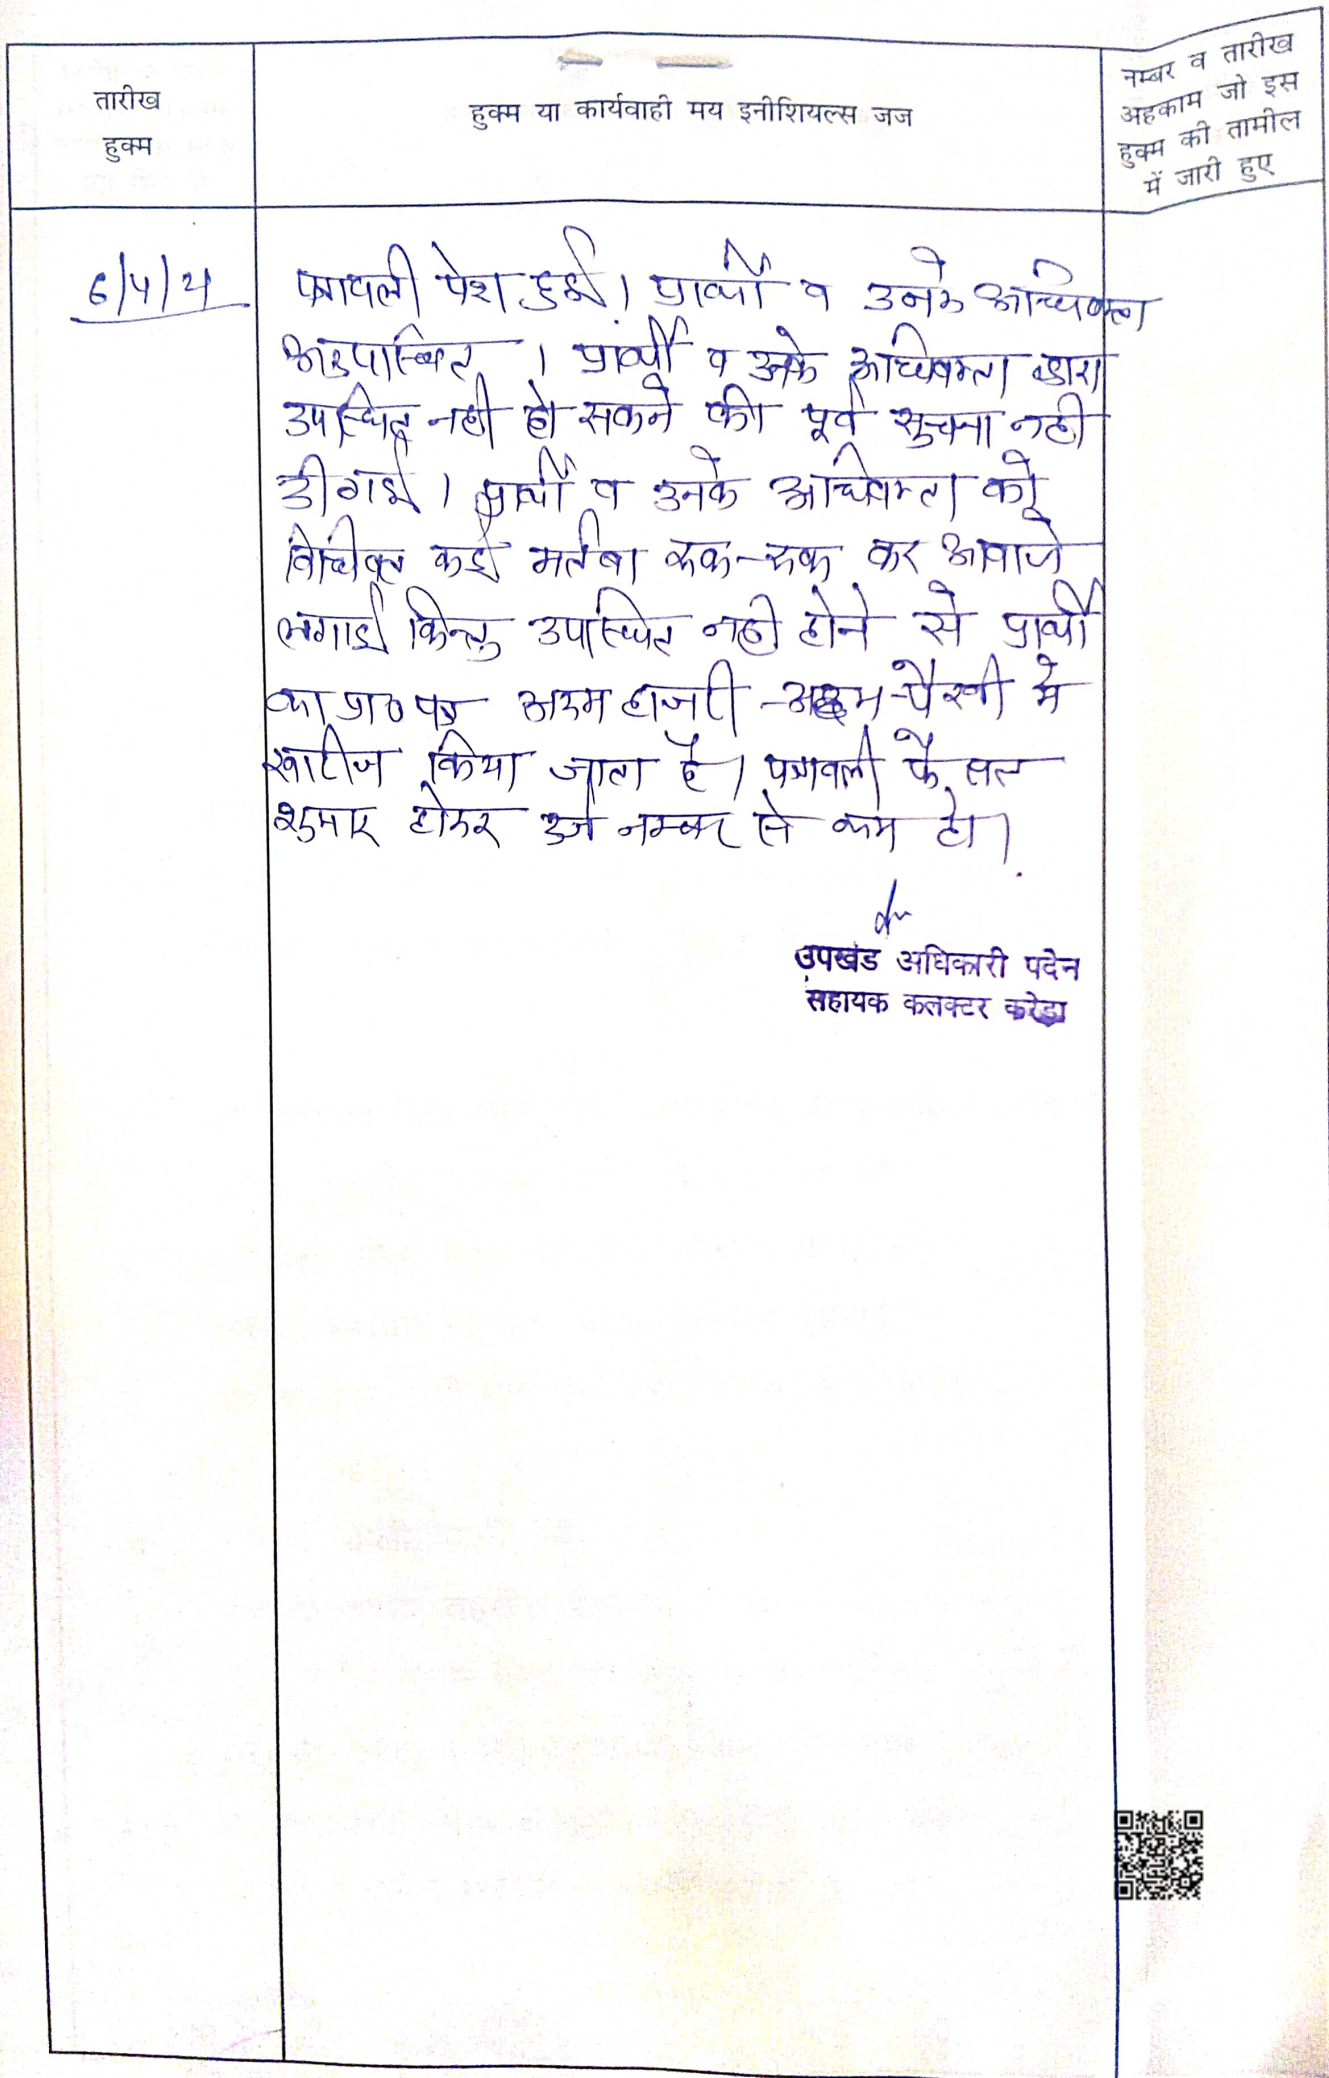 तारीख
हुक्म
हुक्म या कार्यवाही मय इनीशियल्स जज
नम्बर व तारीख
अहकाम जो इस
हुक्म की तामील
में जारी हुए
6/4/21
पत्रावली पेश हुई। प्रार्थी व उनके अधिवक्ता
अनुपस्थित । प्रार्थी व उनके अधिवक्ता द्वारा
उपस्थित नही हो सकने की पूर्व सुचना नही
दी गई। प्रार्थी व उनके अधिवक्ता को
विधिवत कई मर्तबा रुक-रुक कर आवाजे
लगाई किन्तु उपस्थित नही होने से प्रार्थी
का प्रा० पत्र अदम हाजरी -अदम-पैरवी मे
खारीज किया जाता है। पत्रावली फैसल
शुमार होकर दर्ज नम्बर से कम हो।
उपखंड अधिकारी पदेन
सहायक कलक्टर करेडा